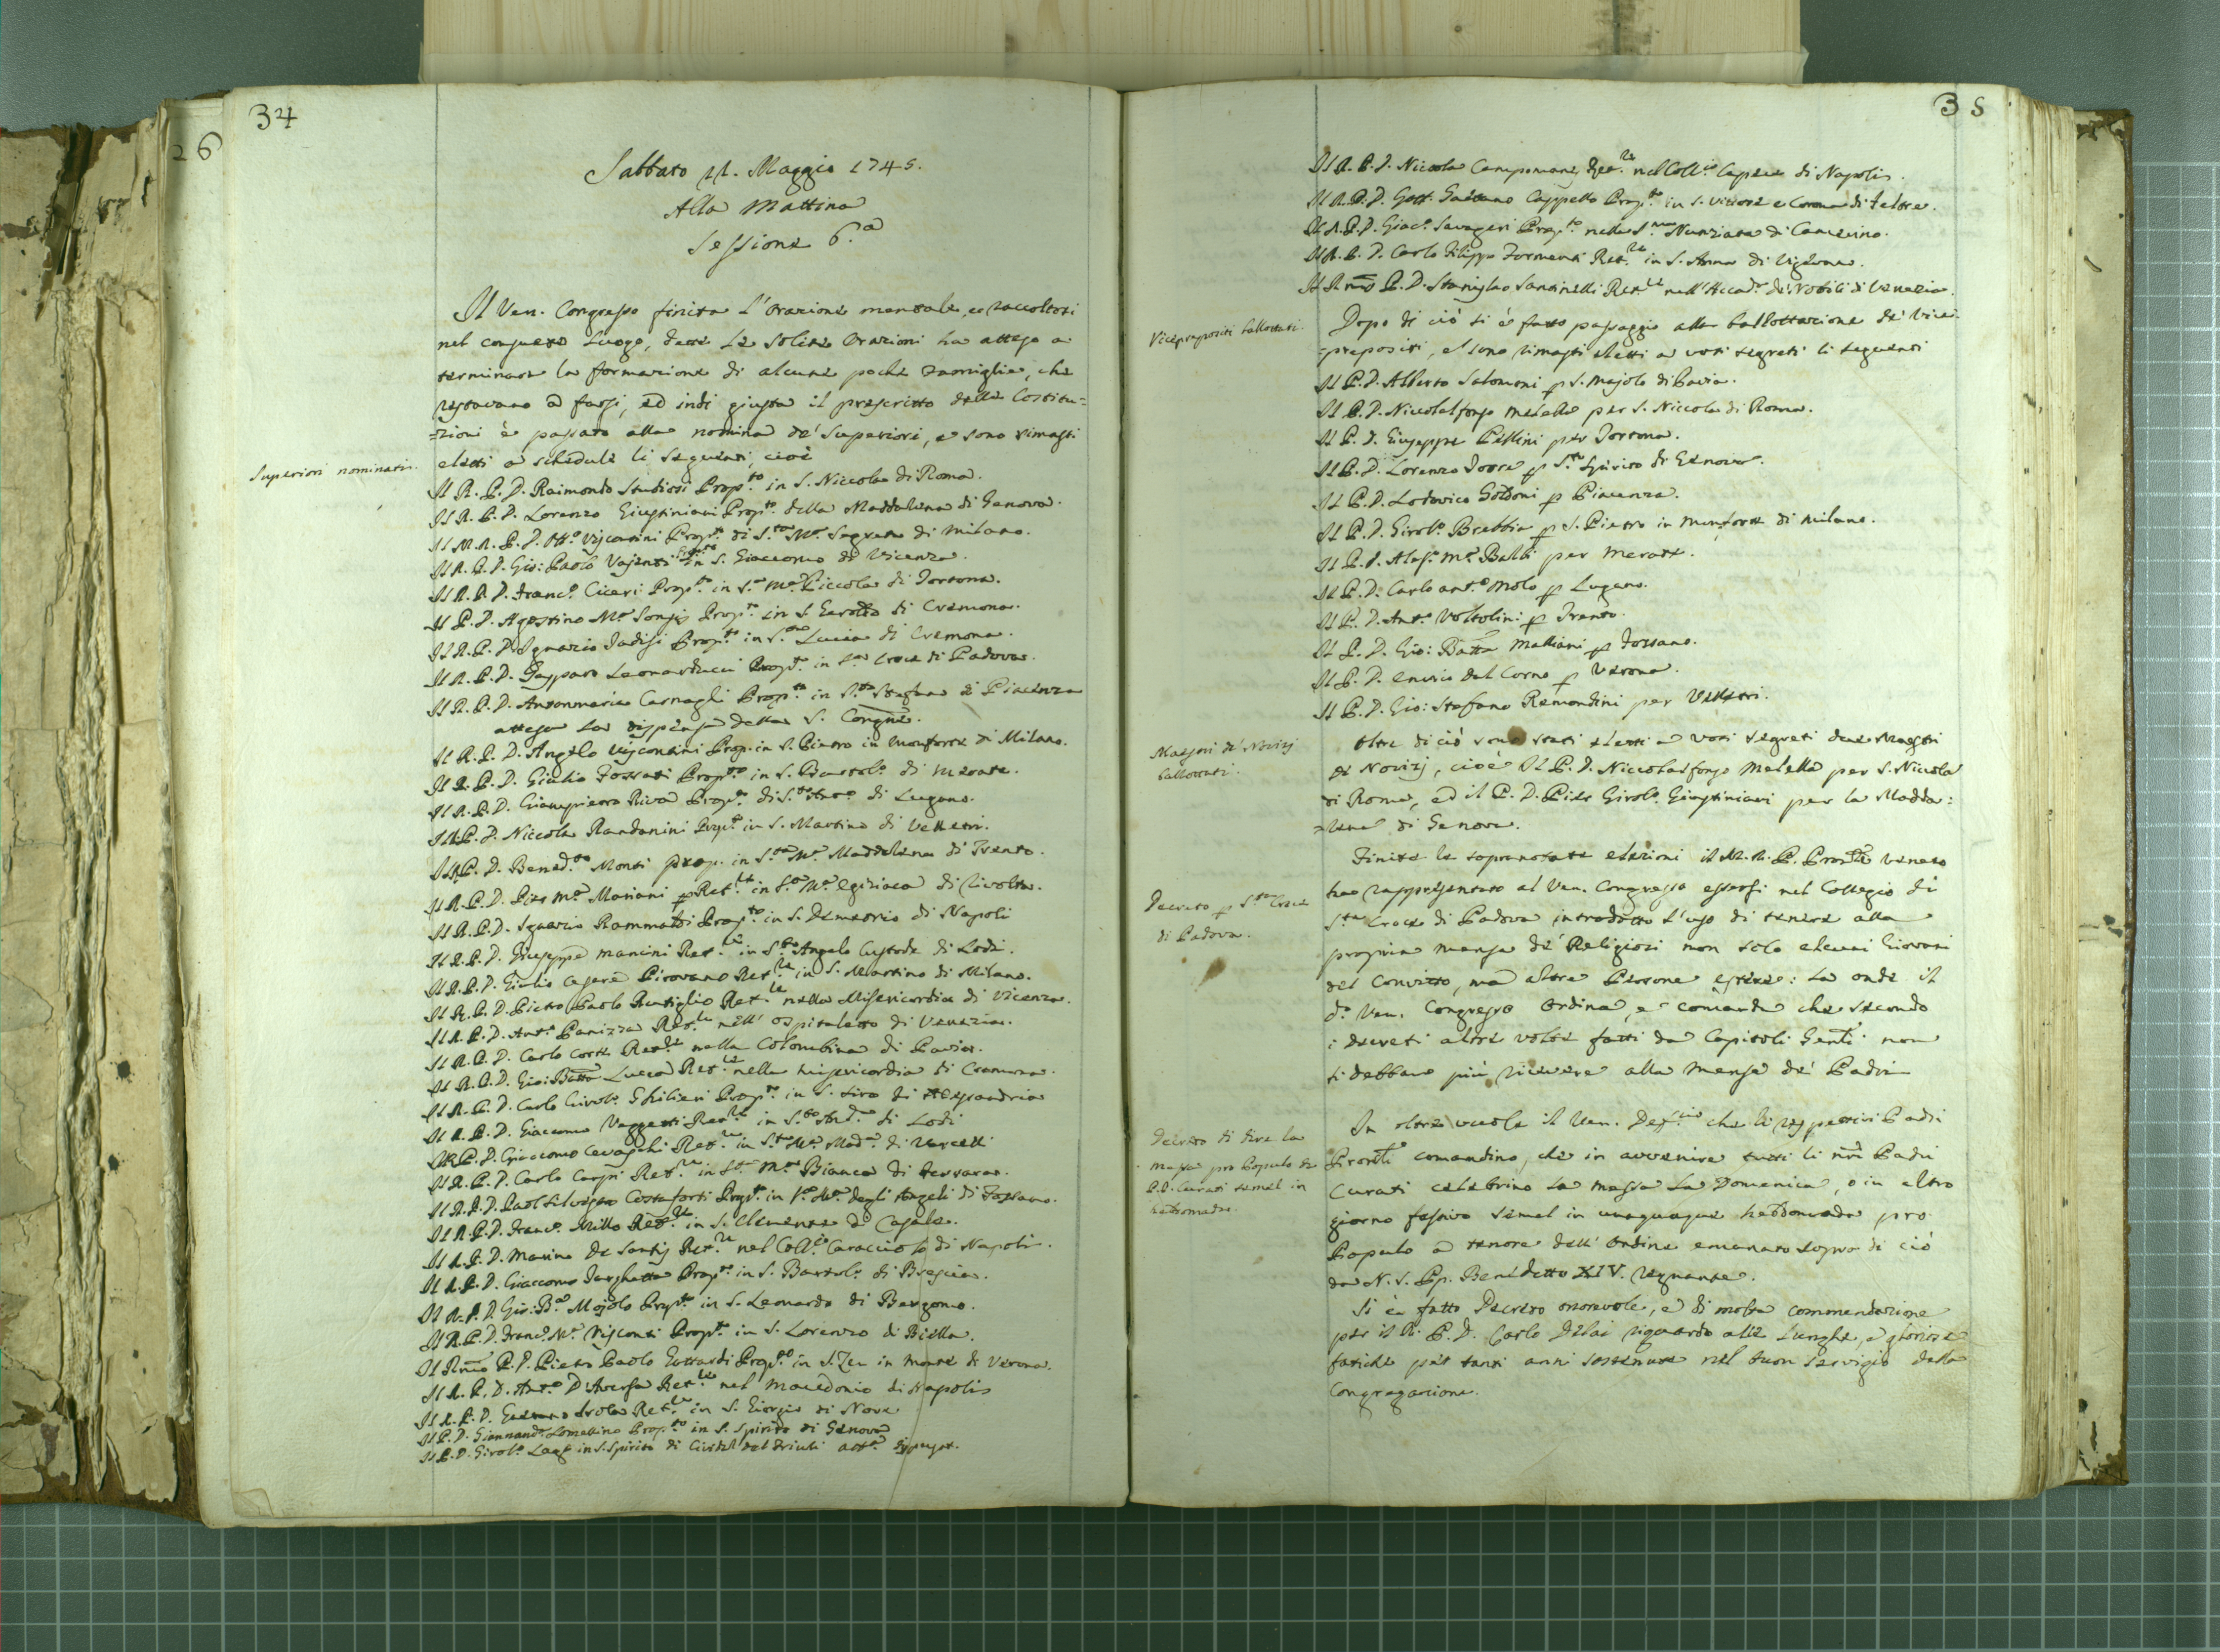 34
26
Sabbato 22. Maggio 1745.
Alla Mattina
Sessione 6.a
Il Ven. Congresso finita l'orazione mentale, e raccoltosi
nel consueto luogo, dette le solite Orazioni ha atteso a
terminare la formazione di alcune poche Famiglie, che
restavano a farsi, ed indi giusta il prescritto delle Costitu=
=zioni è passato alla nomina de' Superiori, e sono rimasti
eletti a schedule li seguenti, cioè
Superiori nominati.
Il R. P. D. Raimondo Studiosi Prop.to in S. Niccola di Roma.
Il R. P. D. Lorenzo Giustiniani Prop.to della Maddalena di Genova.
Il M. R. P. D. Ott.o Visconti Prop.to di S.ta M.a Segreta di Milano.
Il R. P. D. Gio: Paolo Vajenti Prop.to in S. Giaccomo di Vicenza.
Il R. P. D. Franc.o Ciceri Prop.to in S.a M.a Piccola di Tortona.
Il P. D. Agostino M.a Sonsis Prop.to in S. Geroldo di Cremona.
Il R. P. D. Ignazio Tadisi Prop.to in S.ta Lucia di Cremona.
Il R. P. D. Gasparo Leonarducci Prop.to in S.ta Croce di Padova.
Il R. P. D. Antonmaria Carnagli Prop.to in S.to Stefano di Piacenza
attesa la dispensa della S. Congne.
Il R. P. D. Angelo Visconti Prop. in S. Pietro in Monforte di Milano.
Il R. P. D. Giulio Fossati Prop.to in S. Bartol.o di Merate.
Il R. P. D. Giampietro Riva Prop.to di S.to Ant.o di Lugano.
Il R. P. D. Niccola Randanini Prop.to in S. Martino di Velletri.
Il R. P. D. Bened.to Monti prop. in S.ta M.a Maddalena di Trento.
Il R. P. D. Pier M.a Mariani Ret.re in S.ta M.a Egiziaca di Rivolta.
Il R. P. D. Ignazio Rammaldi Prop.to in S. Demetrio di Napoli
Il R. P. D. Giuseppe Mancini Ret.re in S.to Angelo Custode di Lodi.
Il R. P. D. Giulio Cesare Pirovano Ret.re in S. Martino di Milano.
Il R. P. D. Pietro Paolo Rutiglio Ret.re nella Misericordia di Vicenza.
Il R. P. D. Ant.o Panizza Ret.re nell' Ospitaletto di Venezia.
Il R. P. D. Carlo Corte Ret.re nella Colombina di Pavia.
Il R. P. D. Gio: Batta Lucca Ret.re nella Misericordia di Cremona.
Il R. P. D. Carlo Girol.o Ghilieri Prop.to in S. Siro di Alessandria
Il R. P. D. Giacomo Vaggetti Ret.re in S.to And.a di Lodi
Il R. P. D. Giaccomo Cevaschi Ret.re in S.ta M.a Mad.a di Vercelli
Il R. P. D. Carlo Carpi Ret.re in S.ta M.a Bianca di Ferrara.
Il R. P. D. Paol Silvestro Costaforti Prop.to in S.a M.a degli Angeli di Fossano.
Il R. P. D. Franc.o Millo Ret.re in S. Clemente di Casale.
Il R. P. D. Marino De Santis Ret.re nel Coll.o Caracciolo di Napoli.
Il R. P. D. Giaccomo Targhetta Prop.to in S. Bartol.o di Brescia.
Il R. P. D. Gio: B.a Mojolo Prop.to in S. Leonardo di Bergamo.
Il R. P. D. Franc.o M.a Visconti Prop.to in S. Lorenzo di Biella.
Il Rmo P. D. Pietro Paolo Gottardi Prop.to in S. Zen in Monte di Verona.
Il R. P. D. Ant.o D'Aversa Ret.re nel Macedonio di Napoli
Il R. P. D. Gaetano Isola Ret.re in S. Giorgio di Novi
Il P. D. Lomellino Prop.to in S. Spirito di Genova
Il P. D. Girol.o in S. Spirito di Cividal del Friuli
35
Il R. P. D. Niccola Campomany Ret.re nel Coll.o Capece di Napoli.
Il R. P. D. Gott. Gaetano Cappello Prop.to in S. Vittore e Corona di Feltre.
Il R. P. D. Giac.o Savageri Prop.to nella S.ma Nunziata di Camerino.
Il R. P. D. Carlo Filippo Formenti Ret.re in S. Anna di Vigevano.
Il Rmo P. D. Stanislao Santinelli Ret.re nell'Accad.a de' Nobili di Venezia.
Vicepropositi ballottati.
Dopo di ciò si è fatto passaggio alla ballottazione de' Vice
=prepositi, e sono rimasti eletti a voti segreti li seguenti
Il P. D. Alberto Salomoni p S. Majolo di Pavia.
Il P. D. Niccolalfonso Melella per S. Niccola di Roma.
Il P. D. Giuseppe Pellini per Tortona.
Il P. D. Lorenzo Torre p S.to Spirito di Genova.
Il P. D. Lodovico Goldoni p Piacenza.
Il P. D. Girol.o Brebbia p S. Pietro in Monforte di Milano.
Il P. D. Aless.o M.a Balbi per Merate.
Il P. D. Carlo Ant.o Molo p Lugano.
Il P. D. Ant.o Voltolini p Trento.
Il P. D. Gio: Batta Malliani p Fossano.
Il P. D. Enrico dal Corno p Verona.
Il P. D. Gio: Stefano Remondini per Velletri.
Maestri de' Novizj
ballottati.
Oltre di ciò sono stati eletti a voti segreti due Maestri
de Novizj, cioè Il P. D. Niccolalfonso Melella per S. Niccola
di Roma, ed il P. D. Pier Girol.o Giustiniani per la Madda:
=lena di Genova.
Finite le sopranotate elezioni il M. R. P. Prov.le Veneto
ha rappresentato al Ven. Congresso essersi nel Collegio di
Decreto p S.ta Croce
di Padova.
S.ta Croce di Padova introdotto l'uso di tenere alla
propria mensa de' Religiosi non solo alcuni Giovani
del Convitto, ma altre Persone estere: la onde il
d.o Ven. Congresso Ordina, e comanda che secondo
i decreti altre volte fatti da Capitoli Genli non
si debbano più ricevere alla Mensa de' Padri
Decreto di dire la
messa pro Populo da
P.P. Curati semel in
hebdomada.
In oltre vuole il Ven. Def.rio che li rispettivi Padri
Provli comandino, che in avvenire tutti li nri Padri
Curati celebrino la messa la Domenica, o in altro
giorno festivo semel in unaquaque hebdomada pro
Populo a tenore dell' Ordine emanato sopra di ciò
da N. S. Pp. Benedetto XIV. regnante.
Si è fatto Decreto onorevole, e di molta commendazione
per il R. P. D. Carlo Delai riguardo alle lunghe, e gloriose
fatiche per tanti anni sostenute nel buon servigio della
Congregazione.